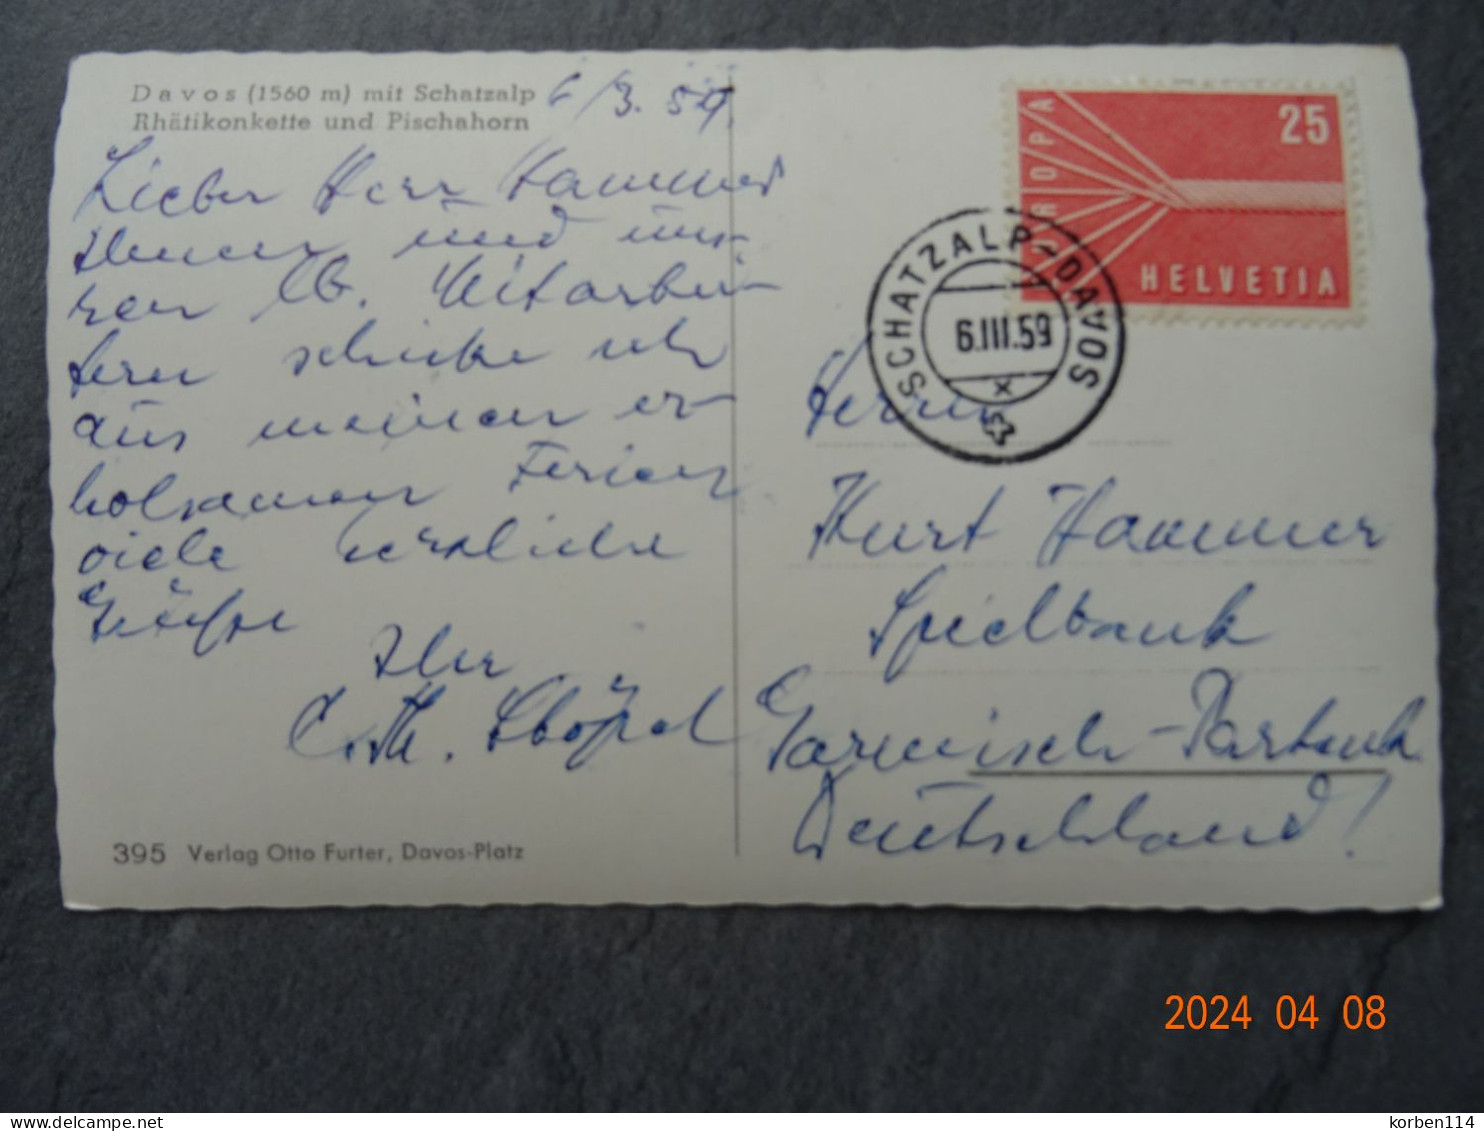 Davos (1560 m) mit Schatzalp
Rhätikonkette und Pischahorn
6/3. 59.
Lieber Herr Hammer
Ihnen und uns-
ren lb. Mitarbei-
tern schicke ich
aus meinen er-
holsamen Ferien
viele herzliche
Grüße
Ihr
395 Verlag Otto Furter, Davos-Platz
EUROPA
25
HELVETIA
SCHATZALP-DAVOS
6.III.59
Herrn
Kurt Hammer
Spielbank
Garmisch-Partenk
Deutschland!
2024 04 08
delcampe.net
korben114